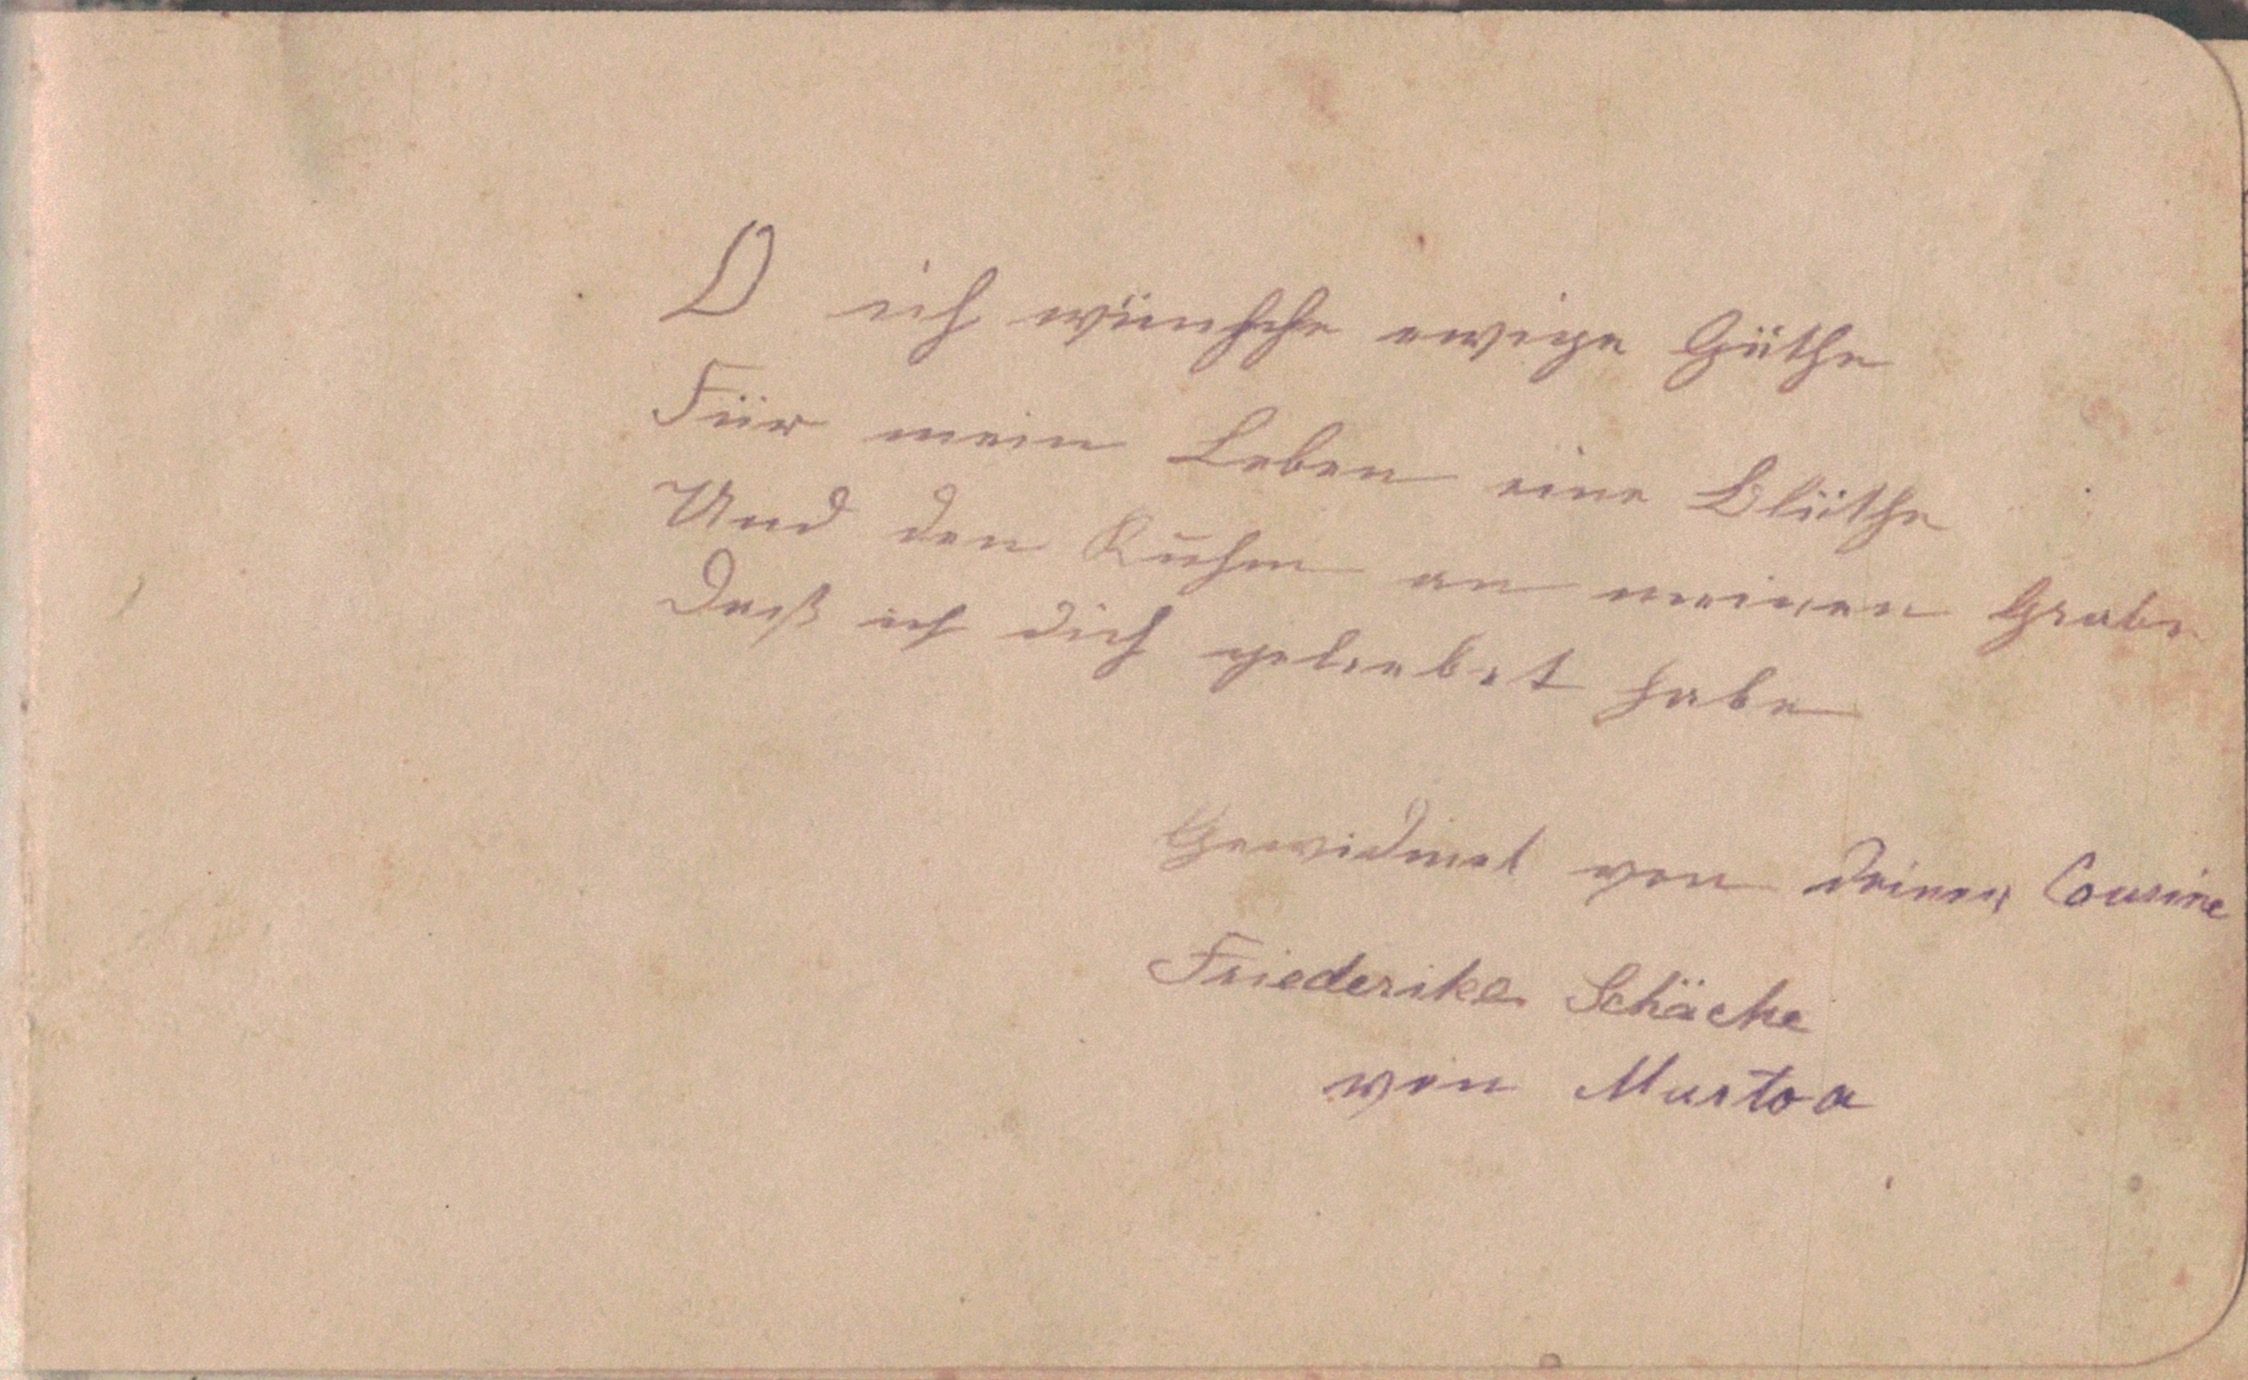 O ich wünsche ewige Güthe
Für mein Leben eine Blüthe
Und den Ruhm an meinen Grabe
Daß ich dich geliebet habe
Gewidmet von deiner Cousine
Friederike Schäche
von Murtoa